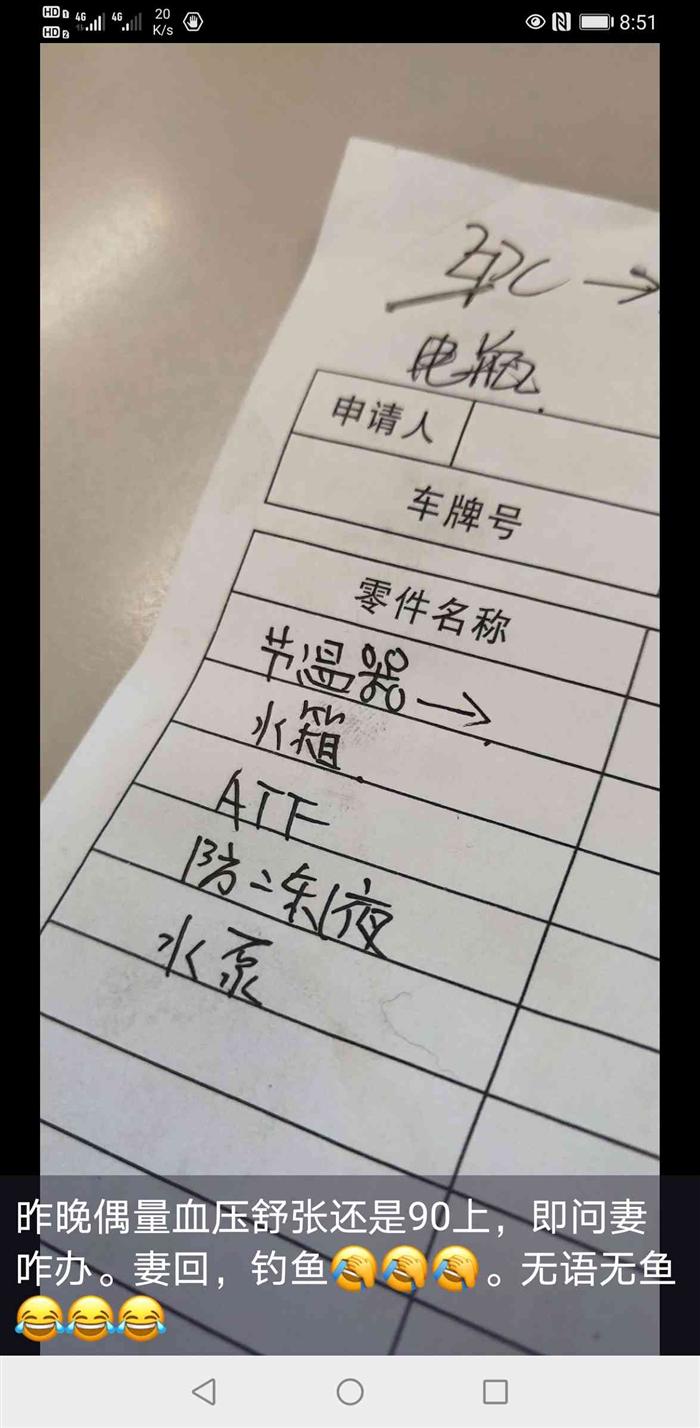 HD 1 4G 4G 20 K/s 8:51
HD 2
EPC →
电瓶
申请人
车牌号
零件名称
节温器→
水箱
ATF
防冻液
水泵
昨晚偶量血压舒张还是90上，即问妻
咋办。妻回，钓鱼🤦🤦🤦。无语无鱼
😂😂😂